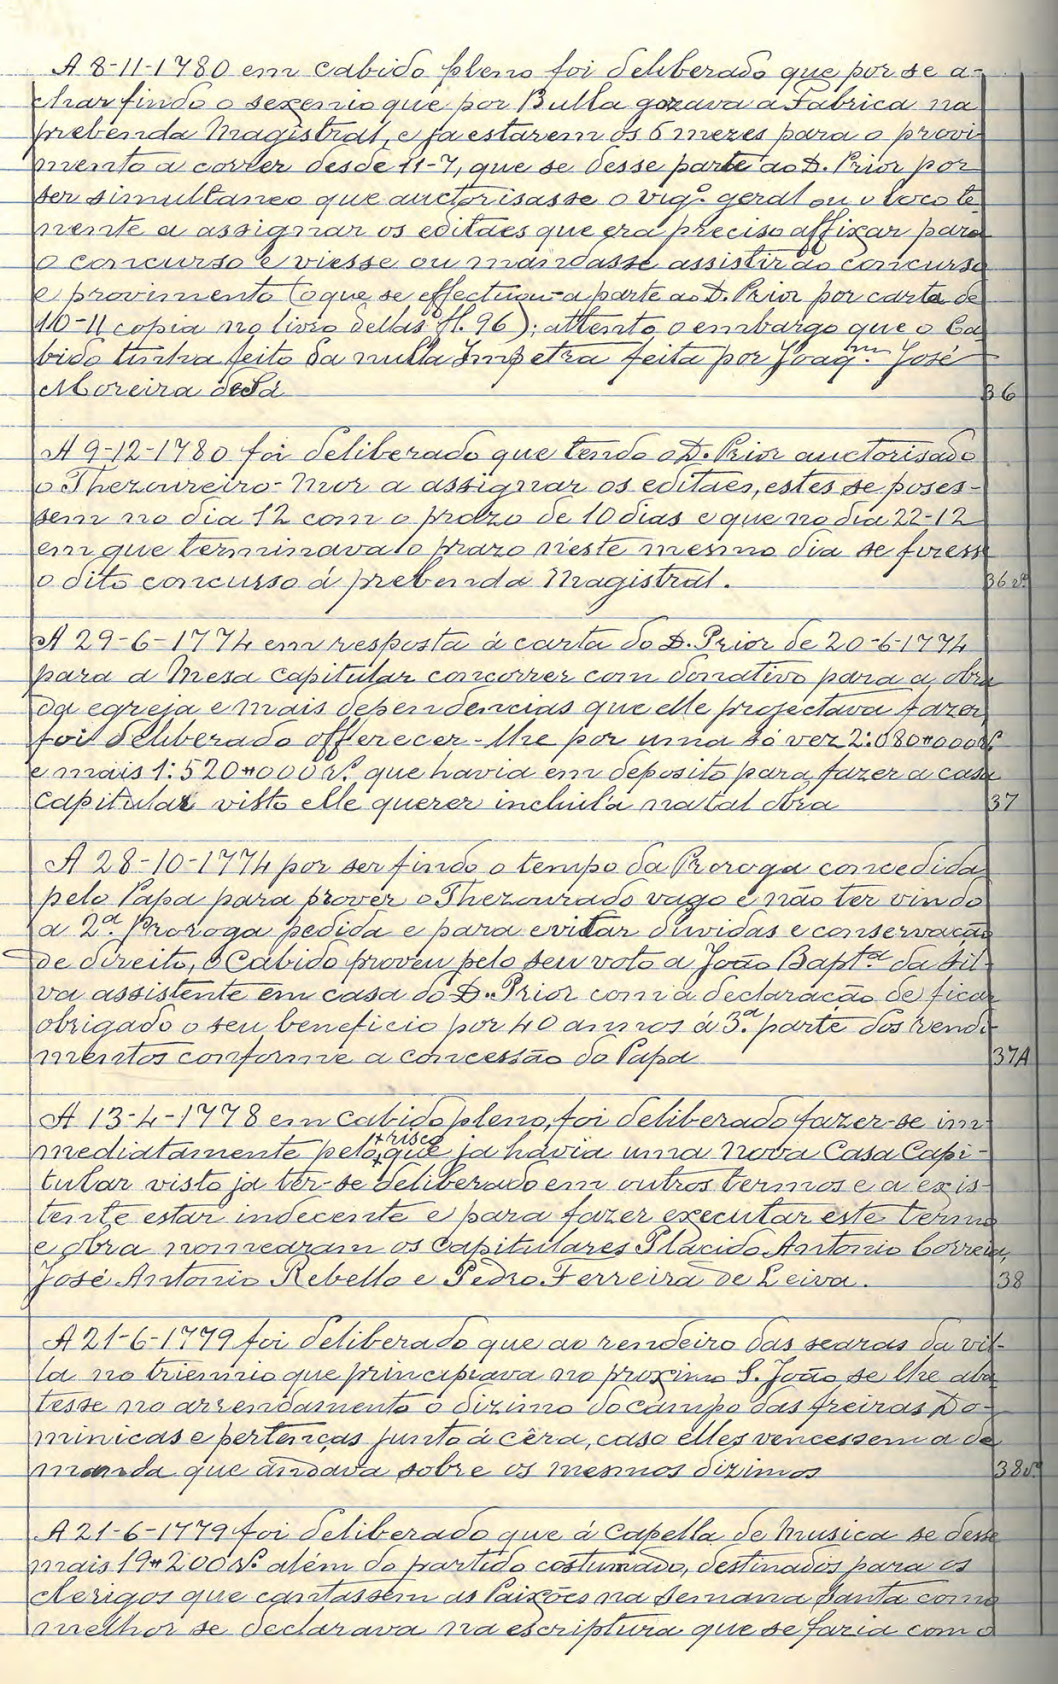 A 8-11-1780 em cabido pleno foi deliberado que por se a-
char findo o sexenio que por Bulla gozava a Fabrica na
prebenda Magistral, e ja estarem os 6 mezes para o provi-
mento a correr desde 11-7, que se desse parte ao D. Prior por
ser simultaneo que auctorisasse o vigº geral ou o loco te-
nente a assignar os editaes que era preciso affixar para
o concurso e viesse ou mandasse assistir ao concurso
e provimento (o que se effectuou a parte ao D. Prior por carta de
10-11 copia no livro dellas fl. 96); attento o embargo que o Ca-
bido tinha feito da nulla Impetra feita por Joaqm José
Moreira de Sá 36
A 9-12-1780 foi deliberado que tendo o D. Prior auctorisado
o Thezoureiro-Mor a assignar os editaes, estes se poses-
sem no dia 12 com o prazo de 10 dias e que no dia 22-12
em que terminava o prazo n'este mesmo dia se fizesse
o dito concurso á prebenda Magistral. 36 vº
A 29-6-1774 em resposta á carta do D. Prior de 20-6-1774
para a Mesa capitular concorrer com donativo para a obra
da egreja e mais dependencias que elle projectava fazer,
foi deliberado offerecer-lhe por uma só vez 2:080#000 rs.
e mais 1:520#000 rs. que havia em deposito para fazer a casa
capitular visto elle querer incluil'a na tal obra 37
A 28-10-1774 por ser findo o tempo da Proroga concedida
pelo Papa para prover o Thezourado vago e não ter vindo
a 2.ª Proroga pedida e para evitar duvidas e conservação
de direito, o Cabido proveu pelo seu voto a João Bapt.ª da Sil-
va assistente em casa do D. Prior com a declaração de ficar
obrigado o seu beneficio por 40 annos á 3.ª parte dos rendi-
mentos conforme a concessão do Papa 37A
A 13-4-1778 em cabido pleno, foi deliberado fazer-se im-
+ risco
mediatamente pelo + que ja havia uma nova Casa Capi-
tular visto ja ter-se deliberado em outros termos e a exis-
tente estar indecente e para fazer executar este termo
e obra nomearam os capitulares Placido Antonio Correia,
José Antonio Rebello e Pedro Ferreira de Leiva. 38
A 21-6-1779 foi deliberado que ao rendeiro das searas da vil-
la no triennio que principiava no proximo S. João se lhe aba-
tesse no arrendamento o dizimo do campo das freiras Do-
minicas e pertenças junto á cêra, caso elles vencessem a de-
manda que andava sobre os mesmos dizimos 38vº
A 21-6-1779 foi deliberado que á Capella de Musica se desse
mais 19#200 rs. além do partido costumado, destinados para os
clerigos que cantassem as Paixões na Semana Santa como
melhor se declarava na escriptura que se faria com o